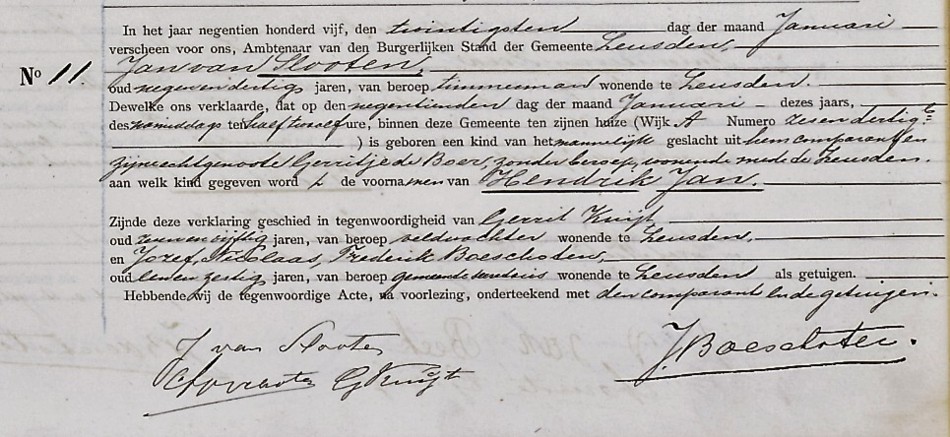 In het jaar negentien honderd vijf, den twintigsten dag der maand Januari
verscheen voor ons, Ambtenaar van den Burgerlijken Stand der Gemeente Leusden,
No 11. Jan van Slooten,
oud negenendertig jaren, van beroep timmerman wonende te Leusden.
Dewelke ons verklaarde, dat op den negentienden dag der maand Januari dezes jaars,
des namiddags ten half twaalf ure, binnen deze Gemeente ten zijnen huize (Wijk A Numero zesendertig
) is geboren een kind van het mannelijk geslacht uit hem comparant en
zijne echtgenoote Gerritje de Boer, zonder beroep, wonende mede te Leusden.
aan welk kind gegeven word t de voornamen van Hendrik Jan.
Zijnde deze verklaring geschied in tegenwoordigheid van Gerrit Kuijt
oud jaren, van beroep veldwachter wonende te Leusden,
en Jozef, Nicolaas, Frederik Boeschoten,
oud een en zestig jaren, van beroep gemeente wonende te Leusden als getuigen.
Hebbende wij de tegenwoordige Acte, na voorlezing, onderteekend met den comparant en de getuigen.
J van Slooten
J. Boeschoten.
G Kuijt